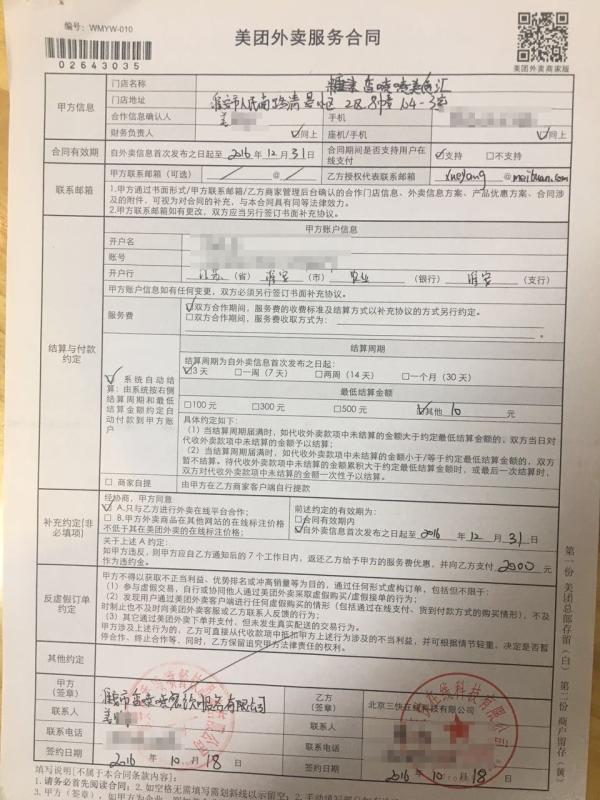 编号：WMYW-010
02643035
美团外卖服务合同
美团外卖商家版
甲方信息
门店名称
门店地址
合作信息确认人 手机
财务负责人 ☑同上 座机/手机 ☑同上
合同有效期 自外卖信息首次发布之日起至2016年12月31日 合同期间是否支持用户在线支付 ☑支持 □不支持
联系邮箱
甲方联系邮箱（可选） / @ / 乙方授权代表联系邮箱 @meituan.com
1.甲方通过书面形式/甲方联系邮箱/乙方商家管理后台确认的合作门店信息、外卖信息方案、产品优惠方案、合同涉及的附件，可视为对合同的补充，与本合同具有同等法律效力。
2.甲方联系邮箱如有更改，双方应当另行签订书面补充协议。
结算与付款约定
甲方账户信息
开户名
账号
开户行 江苏（省） 淮安（市） 农业（银行） 淮安（支行）
甲方账户信息如有任何变更，双方必须另行签订书面补充协议。
服务费
☑双方合作期间，服务费的收费标准及结算方式以补充协议的方式另行约定。
□双方合作期间，服务费收取方式为：
☑系统自动结算：由系统按右侧结算周期和最低结算金额约定自动付款到甲方账户
结算周期
结算周期为自外卖信息首次发布之日起：
☑3天 □一周（7天） □两周（14天） □一个月（30天）
最低结算金额
□100元 □300元 □500元 ☑其他 10 元
具体约定如下：
（1）当结算周期届满时，如代收外卖款项中未结算的金额大于约定最低结算金额的，双方当日对代收外卖款项中未结算的金额予以结算；
（2）当结算周期届满时，如代收外卖款项中未结算的金额小于/等于约定最低结算金额的，双方暂不结算。待代收外卖款项中未结算的金额累积大于约定最低结算金额时，或最后一次结算时，双方对代收外卖款项中未结算的金额一次性予以结算。
□ 商家自提 由甲方在乙方商家客户端自行提款
补充约定(非必填项)
经协商，甲方同意
☑ A.只与乙方进行外卖在线平台合作；
□ B.甲方外卖商品在其他网站的在线标注价格不低于其在美团外卖的在线标注价格；
前述约定的有效期为：
□合同有效期内
☑自外卖信息首次发布之日起至2016年12月31日
关于上述A约定：
如甲方违反，则甲方应自乙方通知后的7个工作日内，返还乙方给予甲方的服务费优惠，并向乙方支付2000元作为违约金。
反虚假订单约定
甲方不得以获取不正当利益、优势排名或冲高销量等为目的，通过任何形式虚构订单，包括但不限于：
（1）参与虚假交易，自行或协同他人通过美团采取虚假购买/虚假接单的行为；
（2）发现用户通过美团客户端进行任何虚假购买的情形（包括通过在线支付、货到付款方式的购买情形），不及时制止也不及时向美团外卖客服或乙方联系人反馈的行为；
（3）其它通过美团下单并支付，但未发生真实配送的交易行为。
甲方涉及上述行为的，乙方可直接从代收款项中抵扣甲方上述行为涉及的不当利益，并可根据情节轻重，决定是否暂停合作、终止合作等，同时，乙方保留追究甲方法律责任的权利。
其他约定
甲方（签章） 乙方（签章） 北京三快在线科技有限公司
联系人 联系人
联系电话 联系电话
签约日期 2016年10月18日 签约日期 2016年10月18日
第一份 美团总部存留（白） 第二份 商户留存（黄）
填写说明[不属于本合同条款内容]：
1.请务必首先阅读合同；2.如空格无需填写需划斜线以示留空；